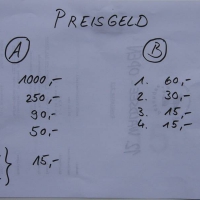 PREISGELD
A B
1000,- 1. 60,-
250,- 2. 30,-
90,- 3. 15,-
50,- 4. 15,-
} 15,-